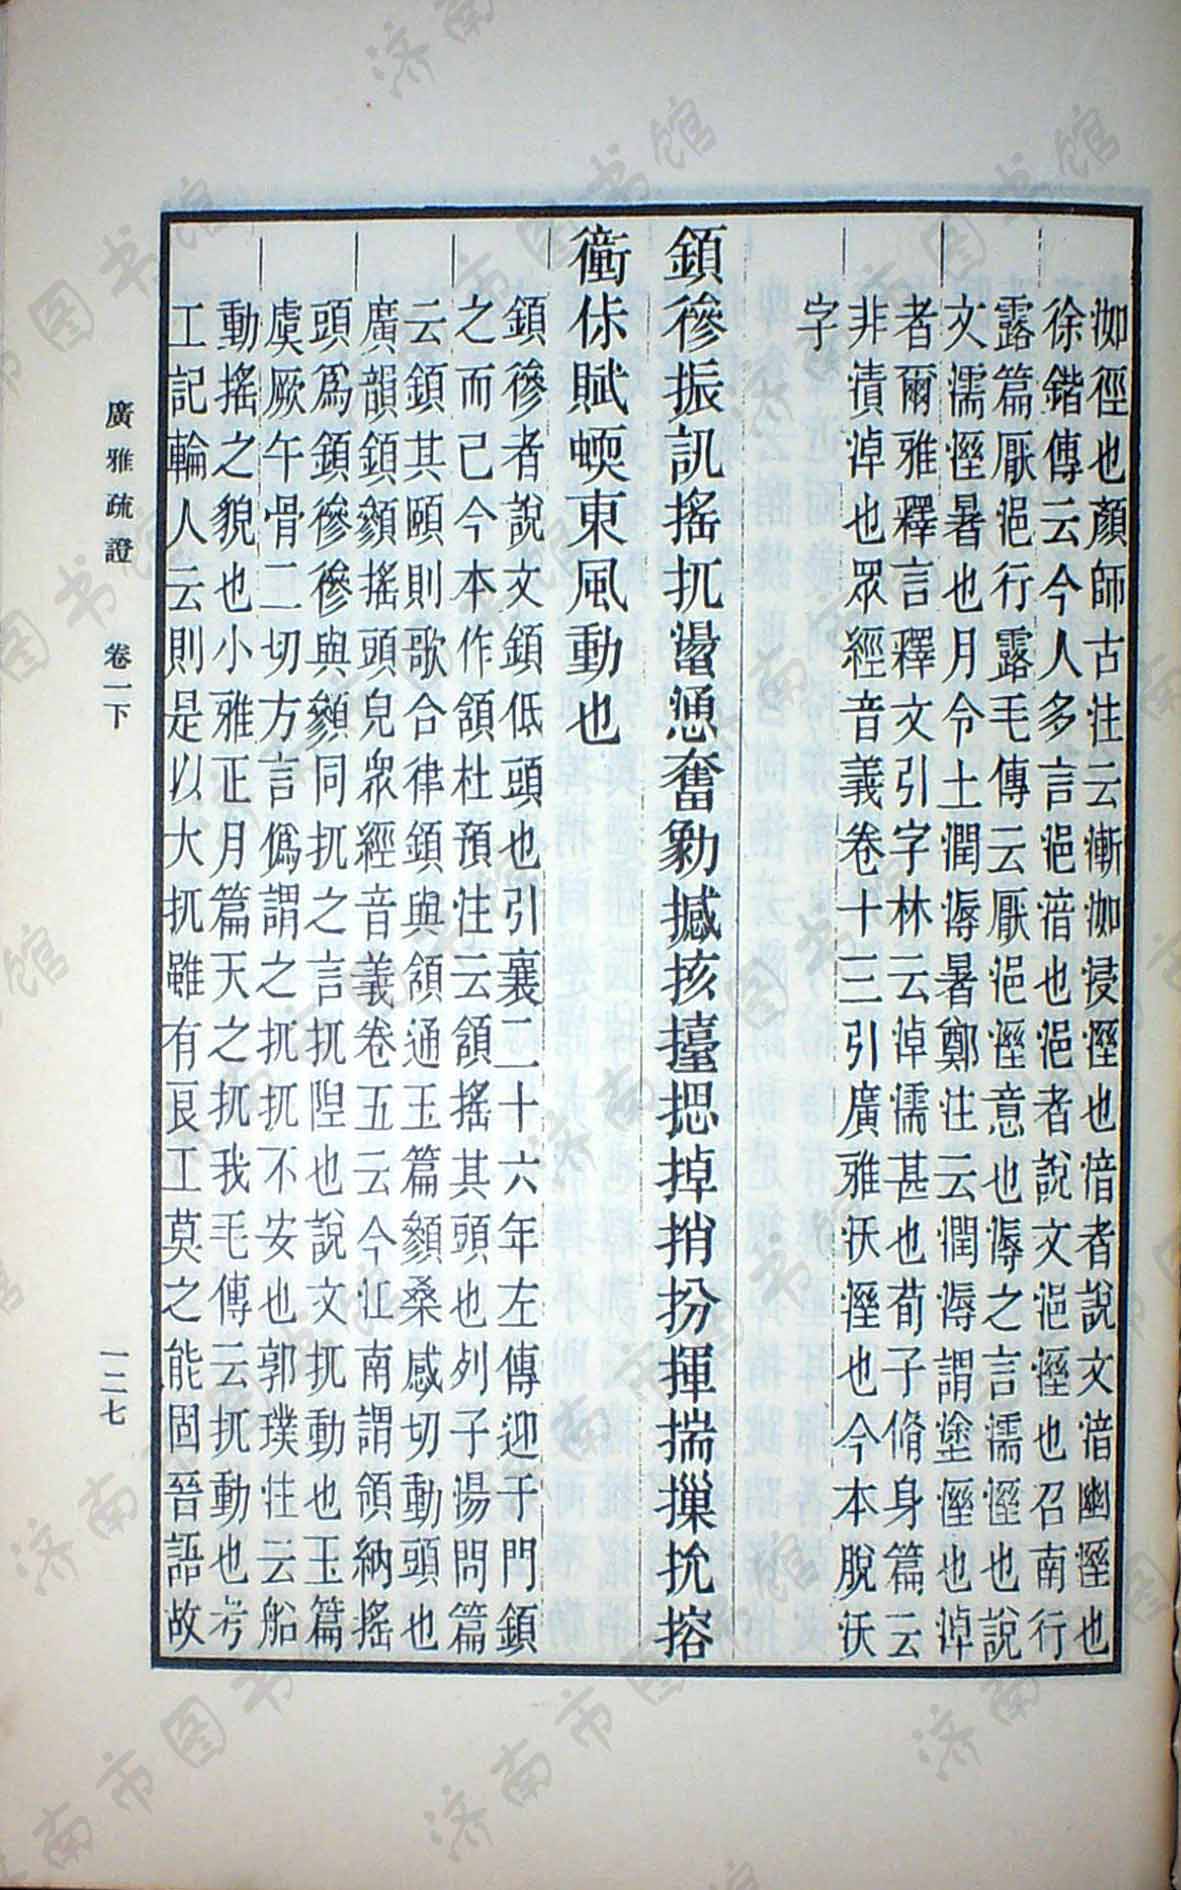 洳徑也顏師古注云漸洳浸溼也湆者說文湆幽溼也
徐鍇傳云今人多言浥湆也浥者說文浥溼也召南行
露篇厭浥行露毛傳云厭浥溼意也溽之言濡溼也說
文濡溼暑也月令土潤溽暑鄭注云潤溽謂塗溼也淖
者爾雅釋言釋文引字林云淖濡甚也荀子脩身篇云
非漬淖也眾經音義卷十三引廣雅沃溼也今本脫沃
字
鎮㣓振訊搖扤㵝慂奮勨撼㧡擡摁掉捎扮揮揣摷抁搈
衝侎賦蝡東風動也
鎮㣓者說文鎮低頭也引襄二十六年左傳迎于門鎮
之而已今本作頷杜預注云頷搖其頭也列子湯問篇
云鎮其頤則歌合律鎮與頷通玉篇顉桑感切動頭也
廣韻鎮顉搖頭皃眾經音義卷五云今江南謂頷納搖
頭爲鎮㣓㣓與顉同扤之言扤隉也說文扤動也玉篇
虞厥午骨二切方言僞謂之扤扤不安也郭璞注云船
動搖之貌也小雅正月篇天之扤我毛傳云扤動也考
工記輪人云則是以大扤雖有良工莫之能固晉語故
廣雅疏證 卷一下
一二七